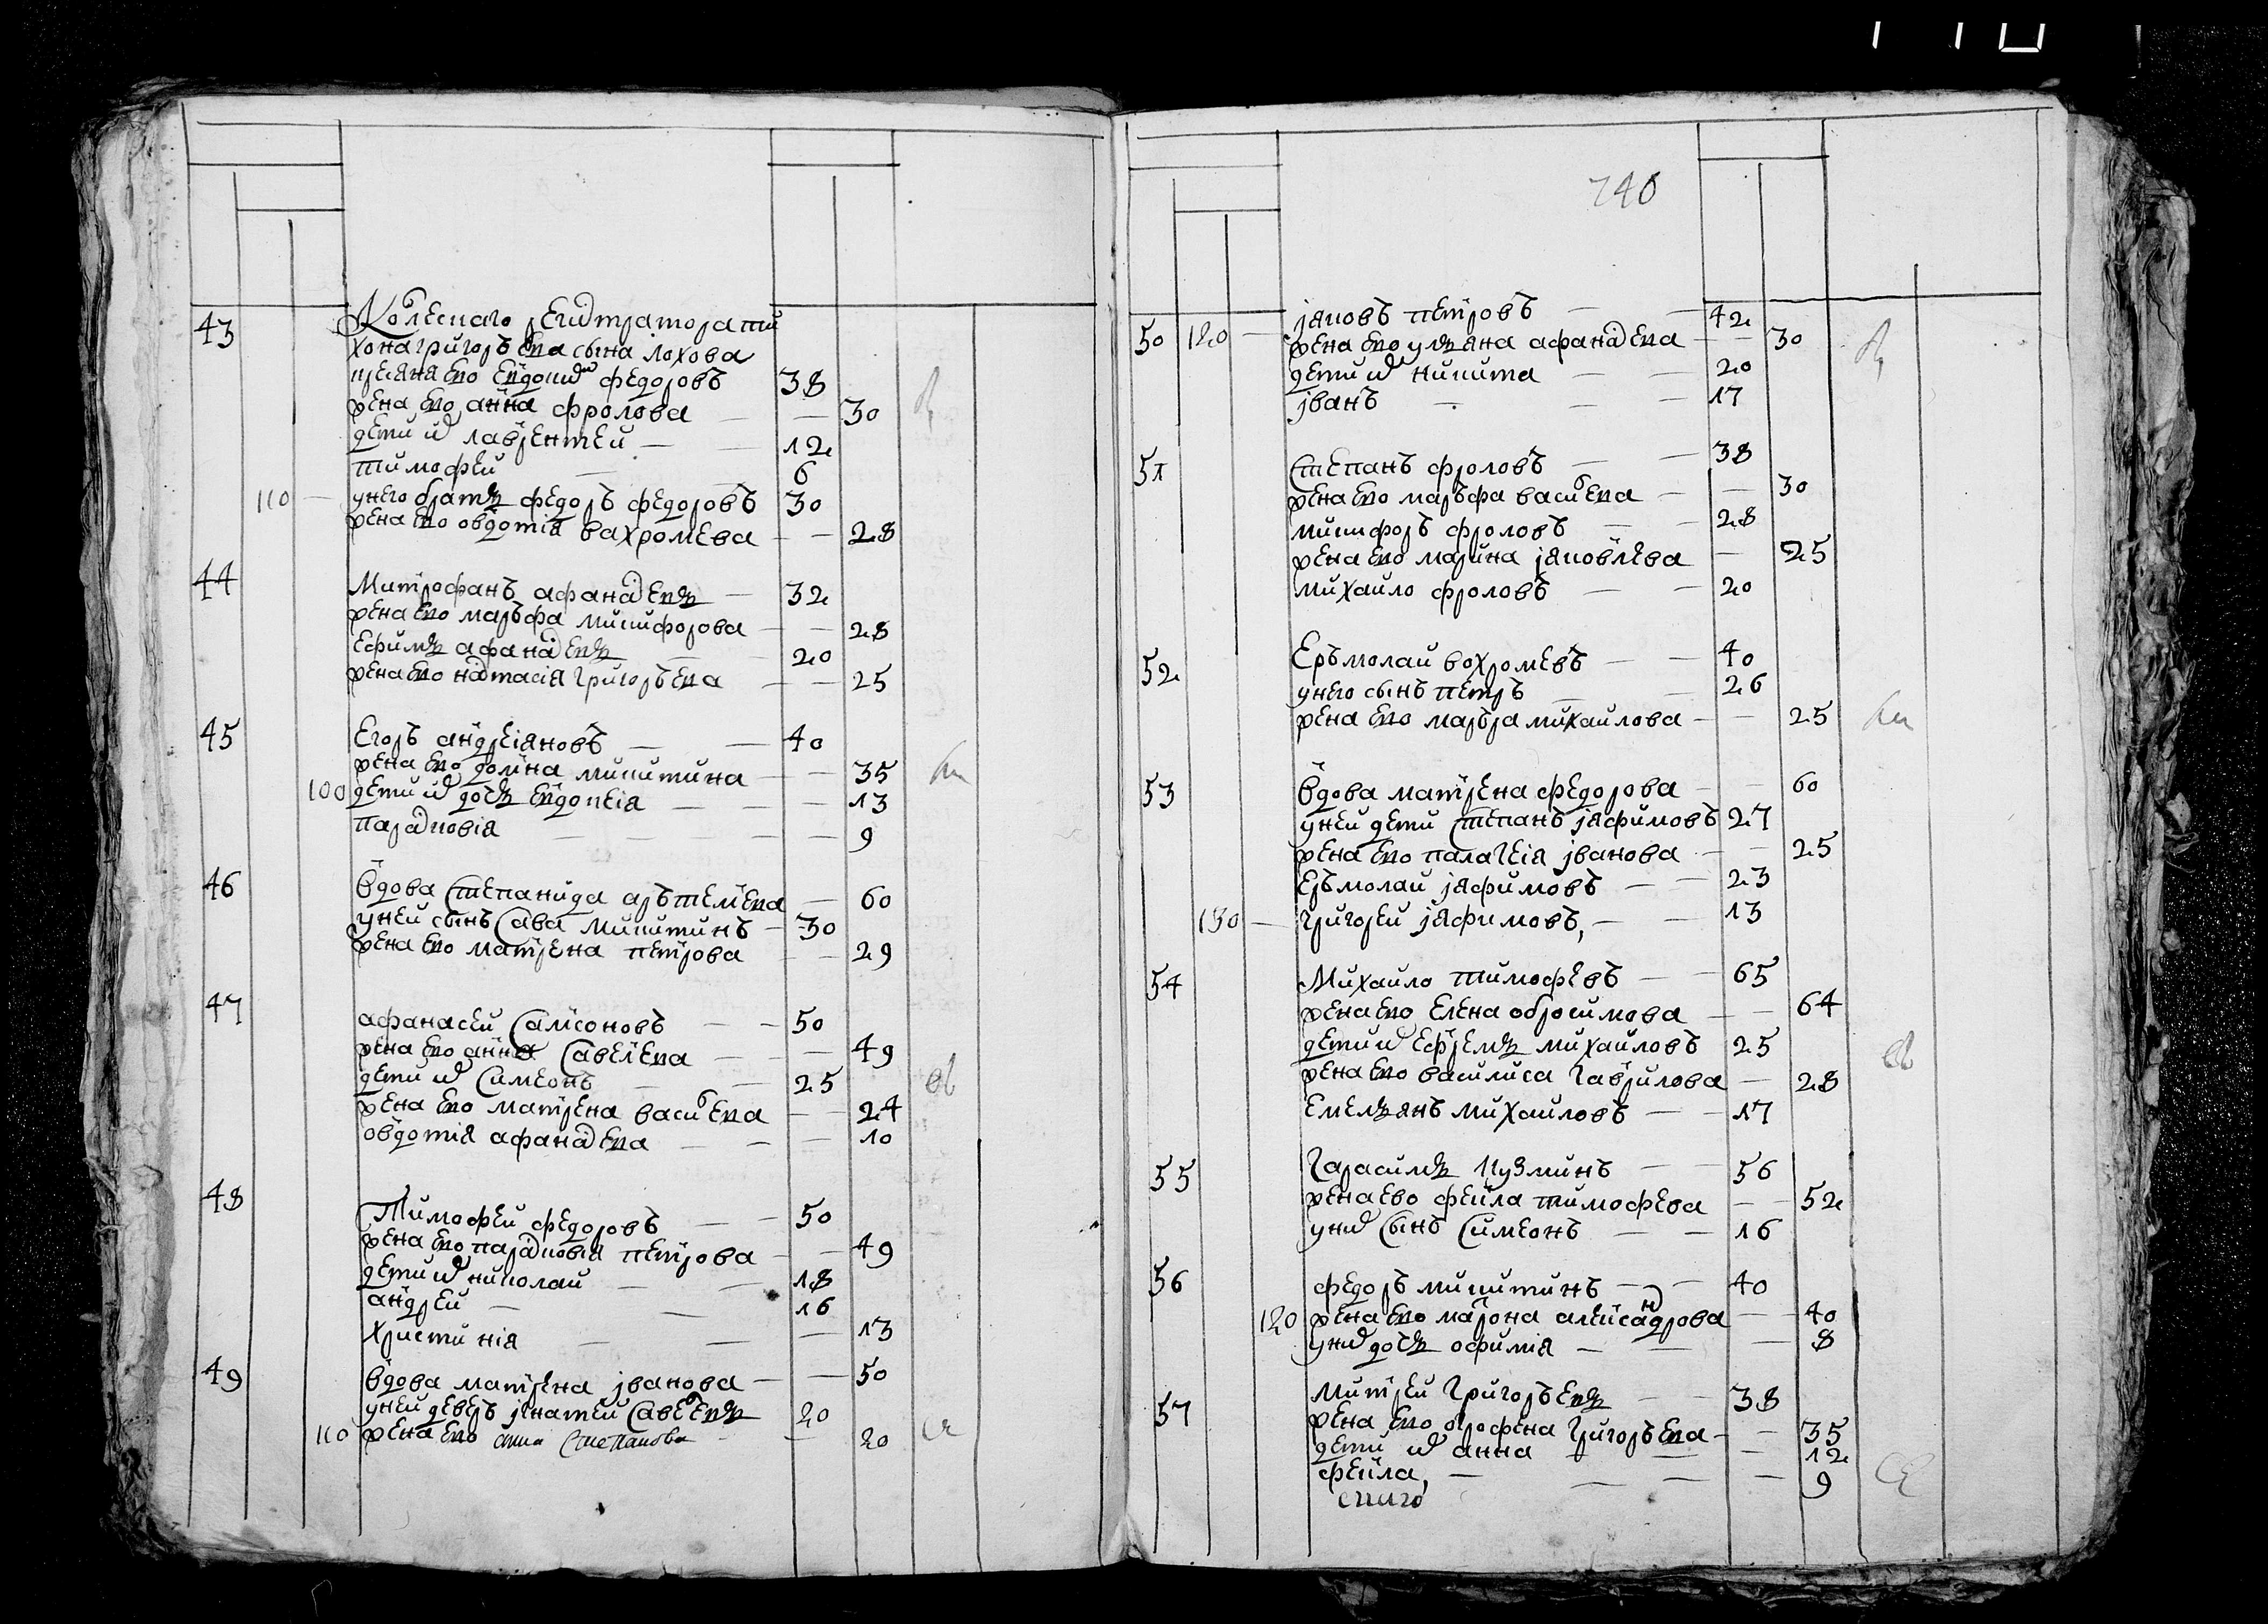 740
43 Колескаго регистратора ти
хона григорьева сына лохова
крестьяне ево евдоким федоровъ 38
жена ево анна фролова — — 30
дети их лаврентеи — — 12
тимофеи — 6
110 — у него братъ федоръ федоровъ 30
жена ево овдотія вахромеева — — 28
44 Митрофанъ афанасевъ — 32
жена ево марьфа никифорова — — 28
ефимъ афанасевъ — 20
жена ево настасія григорьева — — 25
45 Егоръ андреіяновъ — — 40
жена ево домна микитина — — 35
100 дети их дочь евдокеія — — — 13
парасковія — — — 9
46 вдова степанида арьтемева — 60
у неи сынъ сава микитинъ — 30
жена ево матрена петрова — — 29
47 афанасеи самсоновъ — — 50
жена ево анна савелева — — — 49
дети их симеонъ — — 25
жена ево матрена васильева — — 24
овдотія афанасева — — — 10
48 Тимофеи федоровъ — — 50
жена ево парасковія петрова — — 49
дети их николаи — — 18
андреи — — 16
христинія — — — 13
49 вдова матрена іванова — — 50
у неи деверь ігнатеи савелевъ 20
110 жена ево анна степанова — — 20
іаковъ петровъ — — 42
50 120 — жена ево ульяна афанасева — — 30
дети их никита — — 20
іванъ — — — 17
51 степанъ фроловъ — — 38
жена ево марьфа васильева — — 30
никифоръ фроловъ — — 28
жена ево марина іаковлева — 25
михаило фроловъ — — 20
52 Ерьмолаи вохромеевъ — — 40
у него сынъ петръ — — 26
жена ево марья михаилова — — 25
53 вдова матрена федорова — — 60
у неи дети степанъ іяфимовъ 27
жена ево палагеія іванова — — 25
ерьмолаи іяфимовъ — — 23
130 — григореи іяфимовъ, — — 13
54 Михаило тимофеевъ — — 65
жена ево елена обросимова — — 64
дети их ефремъ михаиловъ 25
жена ево василиса гаврилова — 28
емельянъ михаиловъ — — 17
55 Гарасимъ кузминъ — — 56
жена ево фекла тимофеева — — 52
у них сынъ симеонъ — — 16
56 федоръ микитинъ — — 40
120 жена ево марона александрова — — 40
у них дочь офимія — — — 8
57 Митреи григорьевъ — — 38
жена ево огрофена григорьева — — 35
дети их анна — — — 12
фекла, — — — — 9